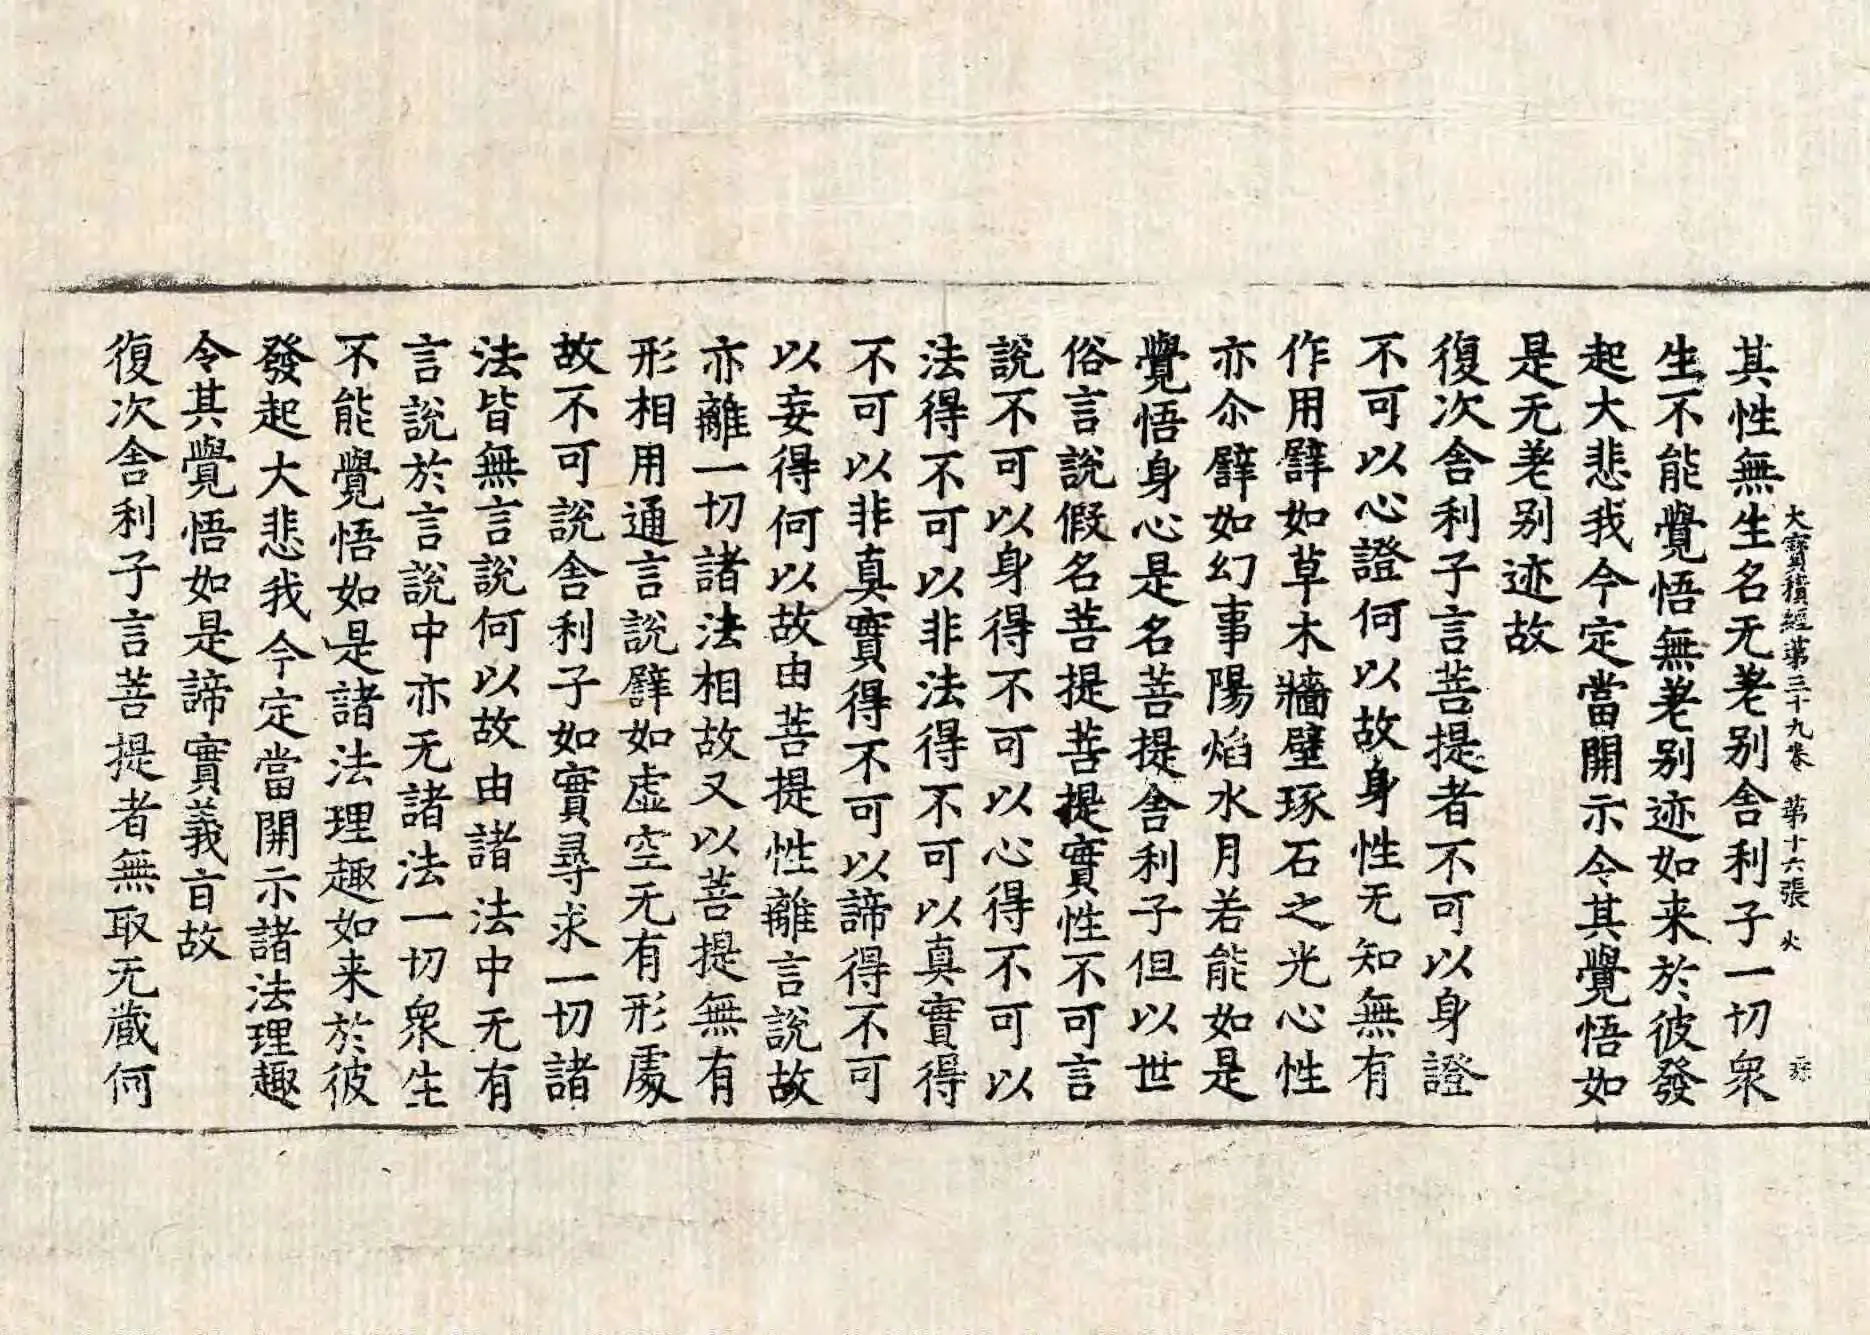 大寳積經第三十九卷　第十六張　火
其性無生名无差别舎利子一切衆
生不能覺悟無差别迹如来於彼發
起大悲我今定當開示令其覺悟如
是无差别迹故
復次舎利子言菩提者不可以身證
不可以心證何以故身性无知無有
作用譬如草木牆壁琢石之光心性
亦尒譬如幻事陽焰水月若能如是
覺悟身心是名菩提舎利子但以世
俗言說假名菩提菩提實性不可言
說不可以身得不可以心得不可以
法得不可以非法得不可以真實得
不可以非真實得不可以諦得不可
以妄得何以故由菩提性離言說故
亦離一切諸法相故又以菩提無有
形相用通言說譬如虚空无有形處
故不可說舎利子如實尋求一切諸
法皆無言說何以故由諸法中无有
言說於言說中亦无諸法一切衆生
不能覺悟如是諸法理趣如来於彼
發起大悲我今定當開示諸法理趣
令其覺悟如是諦實義㫖故
復次舎利子言菩提者無取无藏何